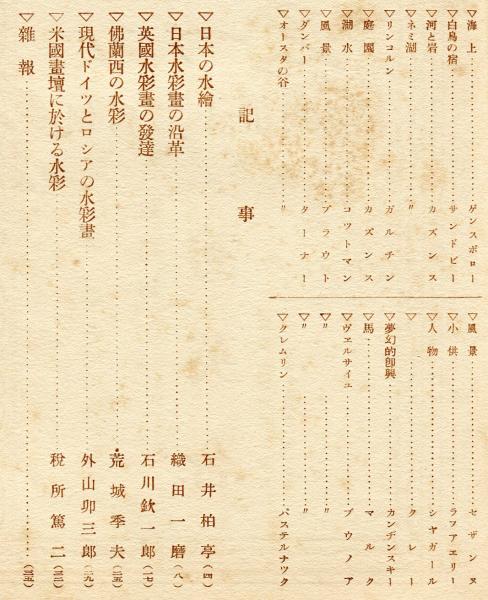 ▽海上……ゲンスボロー
▽白鳥の宿……サンドビー
▽河と岩……カズンス
▽ネミ湖……〃
▽リンコルン……ガルチン
▽庭園……カズンス
▽湖水……コツトマン
▽風景……プラウト
▽ダンバー……ターナー
▽オースタの谷……〃
▽風景……セザンヌ
▽小供……ラフアエリー
▽人物……シヤガール
▽〃……クレー
▽夢幻的卽興……カンヂンスキー
▽馬……マルク
▽ヴエルサイユ……ブウノア
▽〃……〃
▽〃
▽クレムリン……パステルナツク
記事
▽日本の水繪……石井柏亭(四)
▽日本水彩畫の沿革……織田一磨(八)
▽英國水彩畫の發達……石川欽一郞(一七)
▽佛蘭西の水彩……荒城季夫(二五)
▽現代ドイツとロシアの水彩畫……外山卯三郞(二九)
▽米國畫壇に於ける水彩……稅所篤二(三三)
▽雜報……(三五)